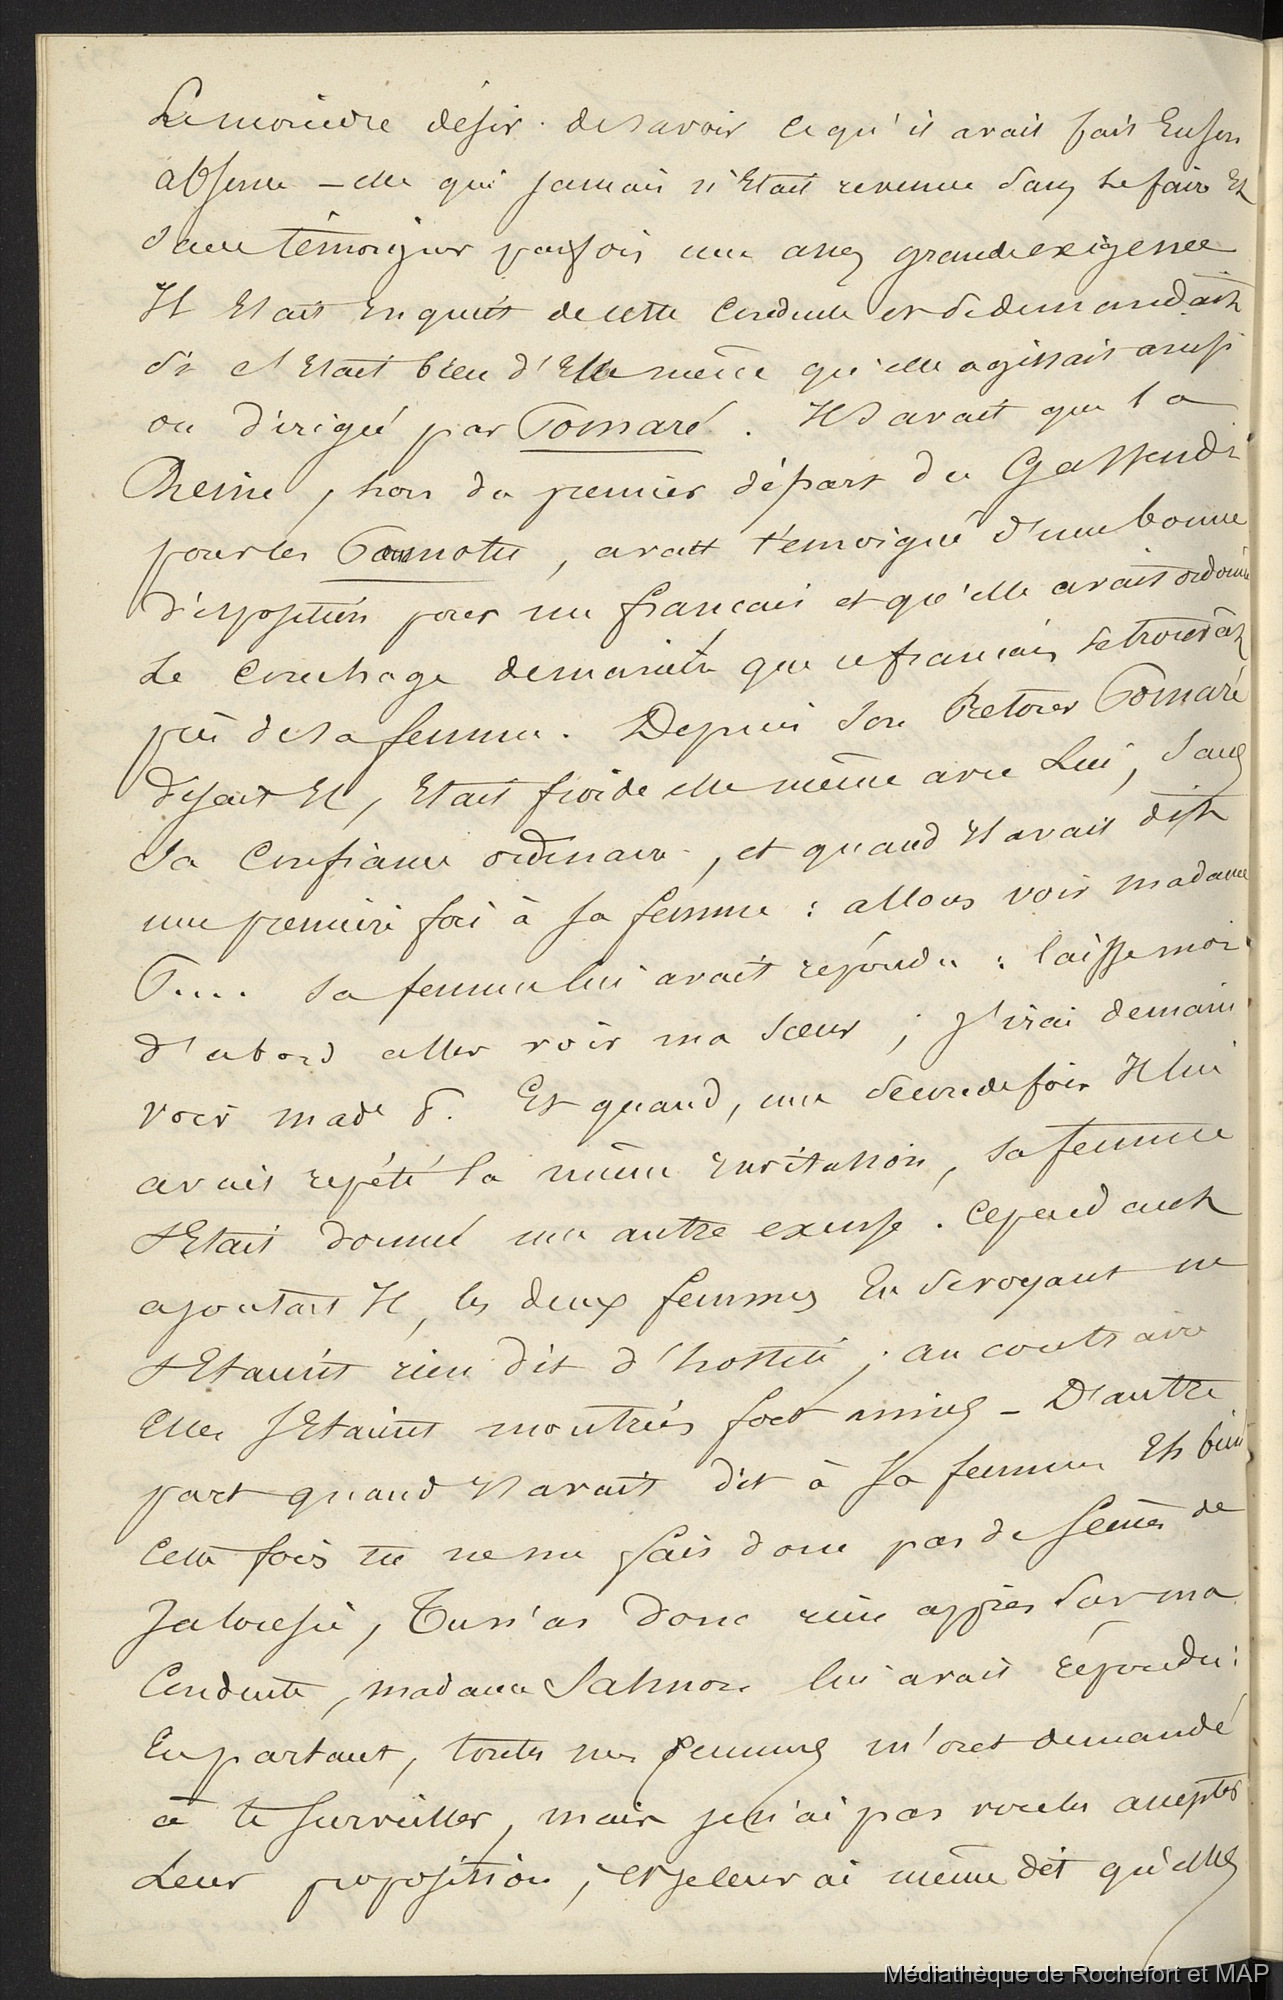 Le moindre désir de savoir ce qu'il avait fait En son
absence – elle qui jamais n'Etait revenue sans le faire Et
sans témoigner parfois une assez grande exigence
Il Etait inquiet de cette conduite et se demandait
si c'Etait bien d'Elle même qu'elle agissait ainsi
ou dirigée par Pomaré. Il savait que la
Reine, lors du premier départ du Gassendi
pour les Pomotu, avait témoigné d'une bonne
disposition pour un français et qu'elle avait ordonné
Le couchage de manière que ce français se trouvât
près de sa femme. Depuis son Retour Pomaré
disait Il, Etait froide elle même avec Lui, sans
sa confiance ordinaire, et quand Il avait dit
une première fois à sa femme : allons voir madame
P.... sa femme lui avait répondu : laisse moi
d'abord aller voir ma sœur ; j'irai demain
voir made P. Et quand, une seconde fois Il lui
avait répété la même invitation, sa femme
s'Etait donné une autre excuse. Cependant
ajoutait Il, les deux femmes En se voyant ne
s'Etaient rien dit d'hostile ; au contraire
Elles s'Etaient montrées fort amies – D'autre
part quand Il avait dit à sa femme Eh bien
cette fois tu ne me fais donc pas de scènes de
Jalousie, Tu n'as donc rien appris sur ma
Conduite, madame Salmon lui avait répondu :
En partant, toutes mes femmes m'ont demandé
à te surveiller, mais je n'ai pas voulu accepter
Leur proposition, et je leur ai même dit qu'elles
Médiathèque de Rochefort et MAP